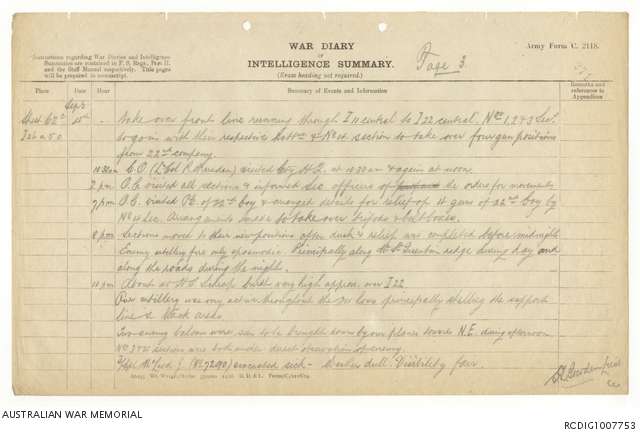 WAR DIARY
OF
INTELLIGENCE SUMMARY.
(Erase heading not required.)
Page 3.
Army Form C. 2118.
Instructions regarding War Diaries and Intelligence
Summaries are contained in F. S. Regs., Part II.
and the Staff Manual respectively. Title pages
will be prepared in manuscript.
Place
Date
Hour
Summary of Events and Information
Remarks and
references to
Appendices
Sheet 62c
Sep 15th
take over front line running through I 11 central to I 22 central. Nos 1, 2 & 3 Sec.
to go in with their respective Battns & No 4 section to take over four gun positions
from 22nd company.
10.30am C.O. (Lt Col R. Marsden) visited Coy H.Q. at 10.30am & again at noon
2 pm. O.C. visited all sections & informed Sec officers of the orders for movements
7 pm O.C. visited of 22nd Coy & arranged details for relief of 4 guns of 22nd Coy by
No 4 Sec. Arrangements made to take over tripods & belt boxes.
8 pm Sections moved to their new positions after dusk & relief was completed before midnight
Enemy artillery fire only spasmodic. Principally along Mt St Quentin ridge during day and
along the roads during the night.
10 pm About burst very high approx. over I 22
Our artillery was very active throughout the principally shelling the support
line & back areas
Two enemy baloons were seen to be brought down by our planes towards N.E. during afternoon
No 3 & 4 sections were both under direct observation of enemy.
evacuated sick - Weather dull. Visibility fair.
AUSTRALIAN WAR MEMORIAL
RCDIG1007753